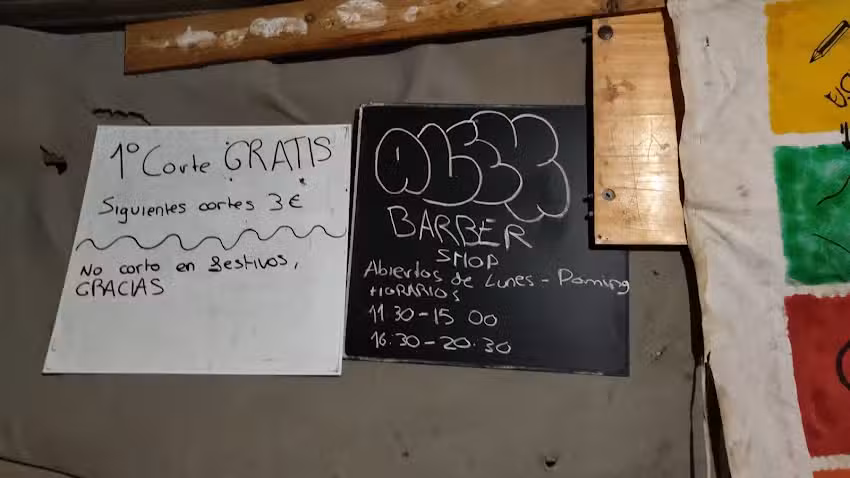 1º Corte GRATIS
Siguientes cortes 3 €
No corto en festivos,
GRACIAS
BARBER
SHOP
Abiertos de Lunes - Doming
HORARIOS
11:30-15 00
16:30-20:30